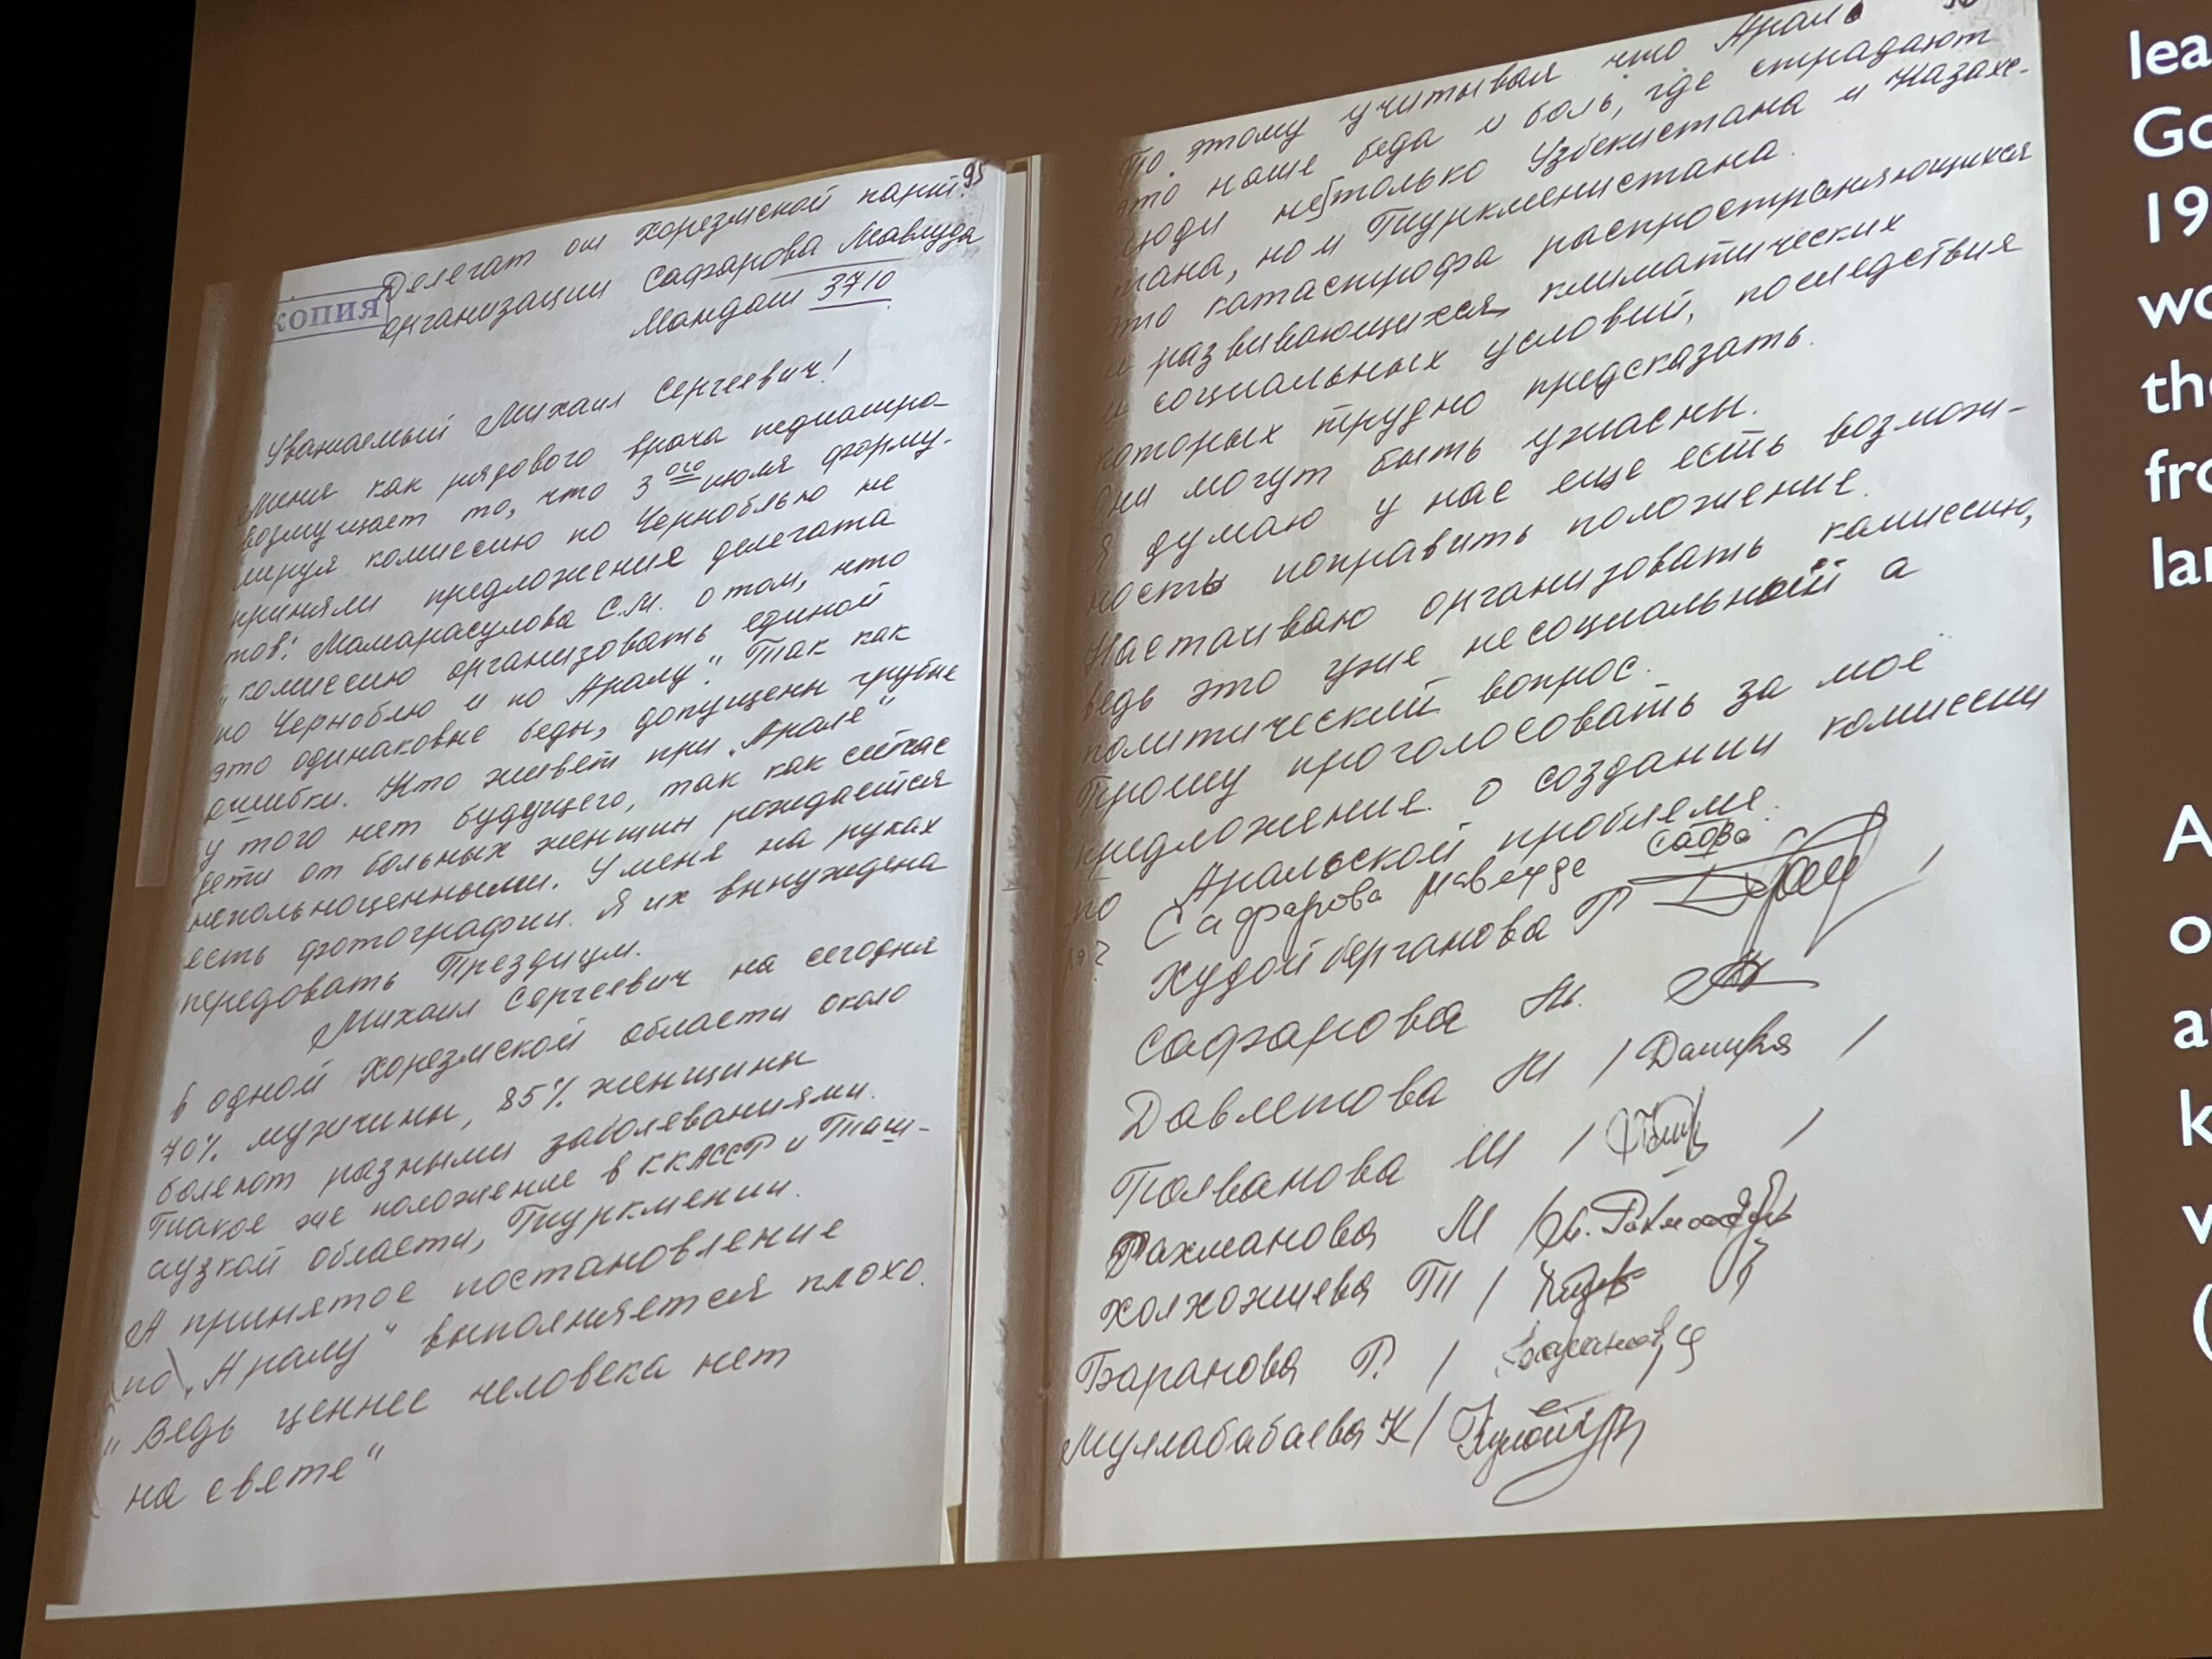 95
Делегат от Хорезмской парт.
КОПИЯ
организации Сафарова Мавлуда
Мандат 3710
Уважаемый Михаил Сергеевич!
Меня как рядового врача педиатра
возмущает то, что 3ого июля форму-
лируя комиссию по Чернобылью не
приняли предложение делегата
тов: Мамарасулова С.М. о том, что
„комиссию организовать единой
по Черноблю и по Аралу". Так как
это одинаковые беды, допущены грубые
ошибки. Кто живет при „Арале"
у того нет будущего, так как сейчас
дети от больных женщин рождается
неполноценными. У меня на руках
есть фотографии. Я их вынуждена
передовать Президиум.
Михаил Сергеевич на сегодня
в одной Хорезмской области около
70% мужчины, 85% женщины
болеют разными заболеваниями.
Такое же положение в ККАССР и Таш-
аузкой области, Туркмении.
А принятое постановление
по „Аралу" выполняется плохо.
„Ведь ценнее человека нет
на свете"
По этому учитывая что Арал
это наше беда и боль, где страдают
люди нетолько Узбекистана и Казахс-
тана, но и Туркменистана.
это катастрофа распространяющихся
и развивающихся климатических
и социальных условий, последствия
которых трудно предсказать.
Они могут быть ужасны.
Я думаю у нас еще есть возмож-
ность поправить положение.
Настаиваю организовать комиссию,
ведь это уже не социальный а
политический вопрос.
Прошу проголосовать за моё
предложение о создании комиссии
по Аральской проблеме.
Сафарова Мавлуда
Худойберганова Р
Сафарова М.
Давлетова М /
Полванова Ш /
Рахманова М /
Холхожиева Т /
Баранова Р. /
Муллабабаева К /
lea
Go
19
wo
the
fro
lan
A
o
a
k
v
(